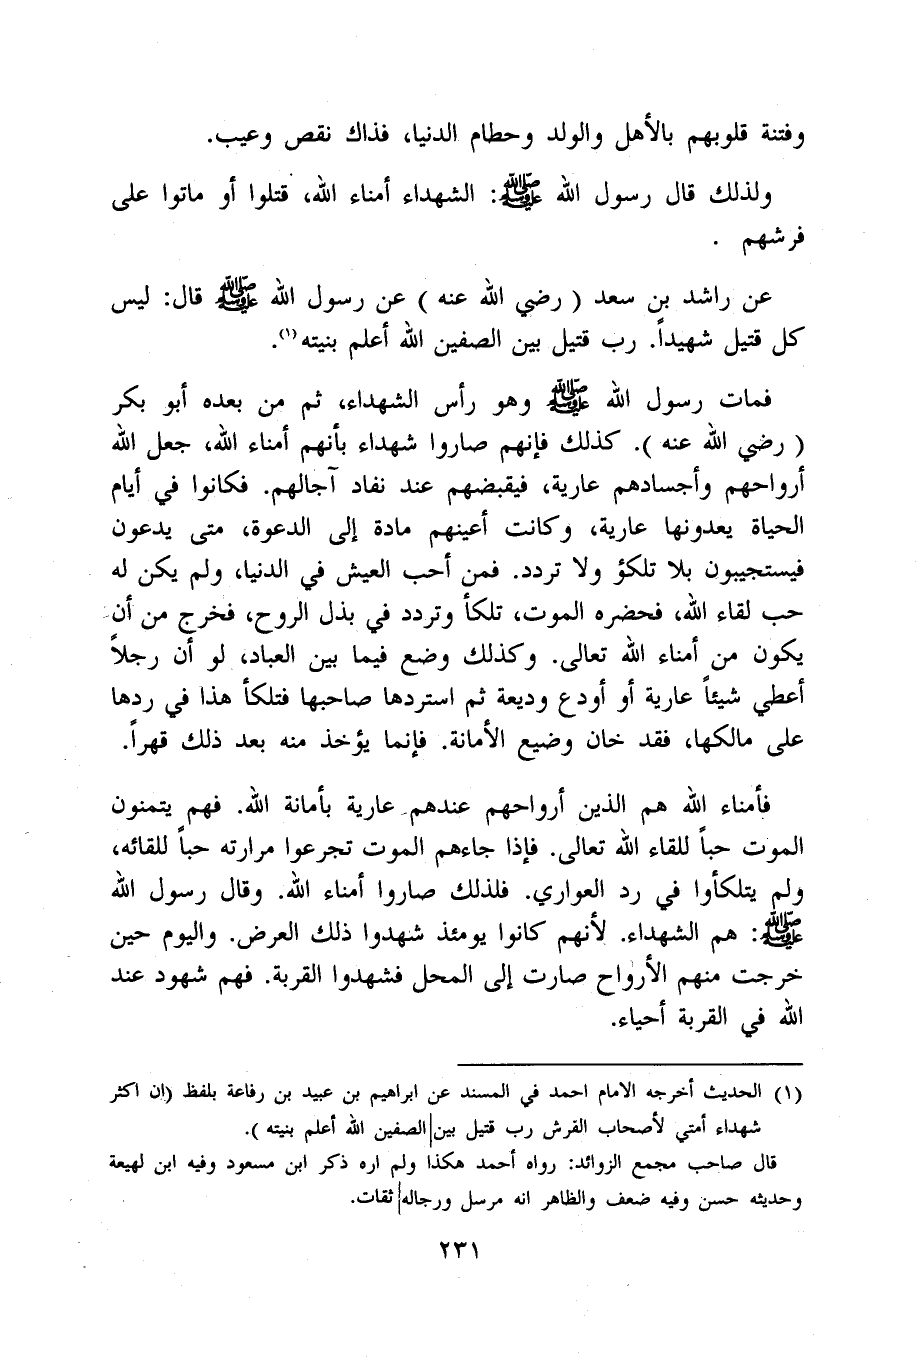 وفتنة قلوبهم بالأهل والولد وحطام الدنيا، فذاك نقص وعيب.
ولذلك قال رسول الله ﷺ: الشهداء أمناء الله، قتلوا أو ماتوا على
فرشهم .
عن راشد بن سعد ( رضي الله عنه ) عن رسول الله ﷺ قال: ليس
كل قتيل شهيداً. رب قتيل بين الصفين الله أعلم بنيته(١).
فمات رسول الله ﷺ وهو رأس الشهداء، ثم من بعده أبو بكر
( رضي الله عنه ). كذلك فإنهم صاروا شهداء بأنهم أمناء الله، جعل الله
أرواحهم وأجسادهم عارية، فيقبضهم عند نفاد آجالهم. فكانوا في أيام
الحياة يعدونها عارية، وكانت أعينهم مادة إلى الدعوة، متى يدعون
فيستجيبون بلا تلكؤ ولا تردد. فمن أحب العيش في الدنيا، ولم يكن له
حب لقاء الله، فحضره الموت، تلكأ وتردد في بذل الروح، فخرج من أن
يكون من أمناء الله تعالى. وكذلك وضع فيما بين العباد، لو أن رجلاً
أعطي شيئاً عارية أو أودع وديعة ثم استردها صاحبها فتلكأ هذا في ردها
على مالكها، فقد خان وضيع الأمانة. فإنما يؤخذ منه بعد ذلك قهراً.
فأمناء الله هم الذين أرواحهم عندهم عارية بأمانة الله. فهم يتمنون
الموت حباً للقاء الله تعالى. فإذا جاءهم الموت تجرعوا مرارته حباً للقائه،
ولم يتلكأوا في رد العواري. فلذلك صاروا أمناء الله. وقال رسول الله
ﷺ: هم الشهداء. لأنهم كانوا يومئذ شهدوا ذلك العرض. واليوم حين
خرجت منهم الأرواح صارت إلى المحل فشهدوا القربة. فهم شهود عند
الله في القربة أحياء.
(١) الحديث أخرجه الامام احمد في المسند عن ابراهيم بن عبيد بن رفاعة بلفظ (إن اكثر
شهداء أمتي لأصحاب الفرش رب قتيل بين الصفين الله أعلم بنيته ).
قال صاحب مجمع الزوائد: رواه أحمد هكذا ولم اره ذكر ابن مسعود وفيه ابن لهيعة
وحديثه حسن وفيه ضعف والظاهر انه مرسل ورجاله ثقات.
٢٣١